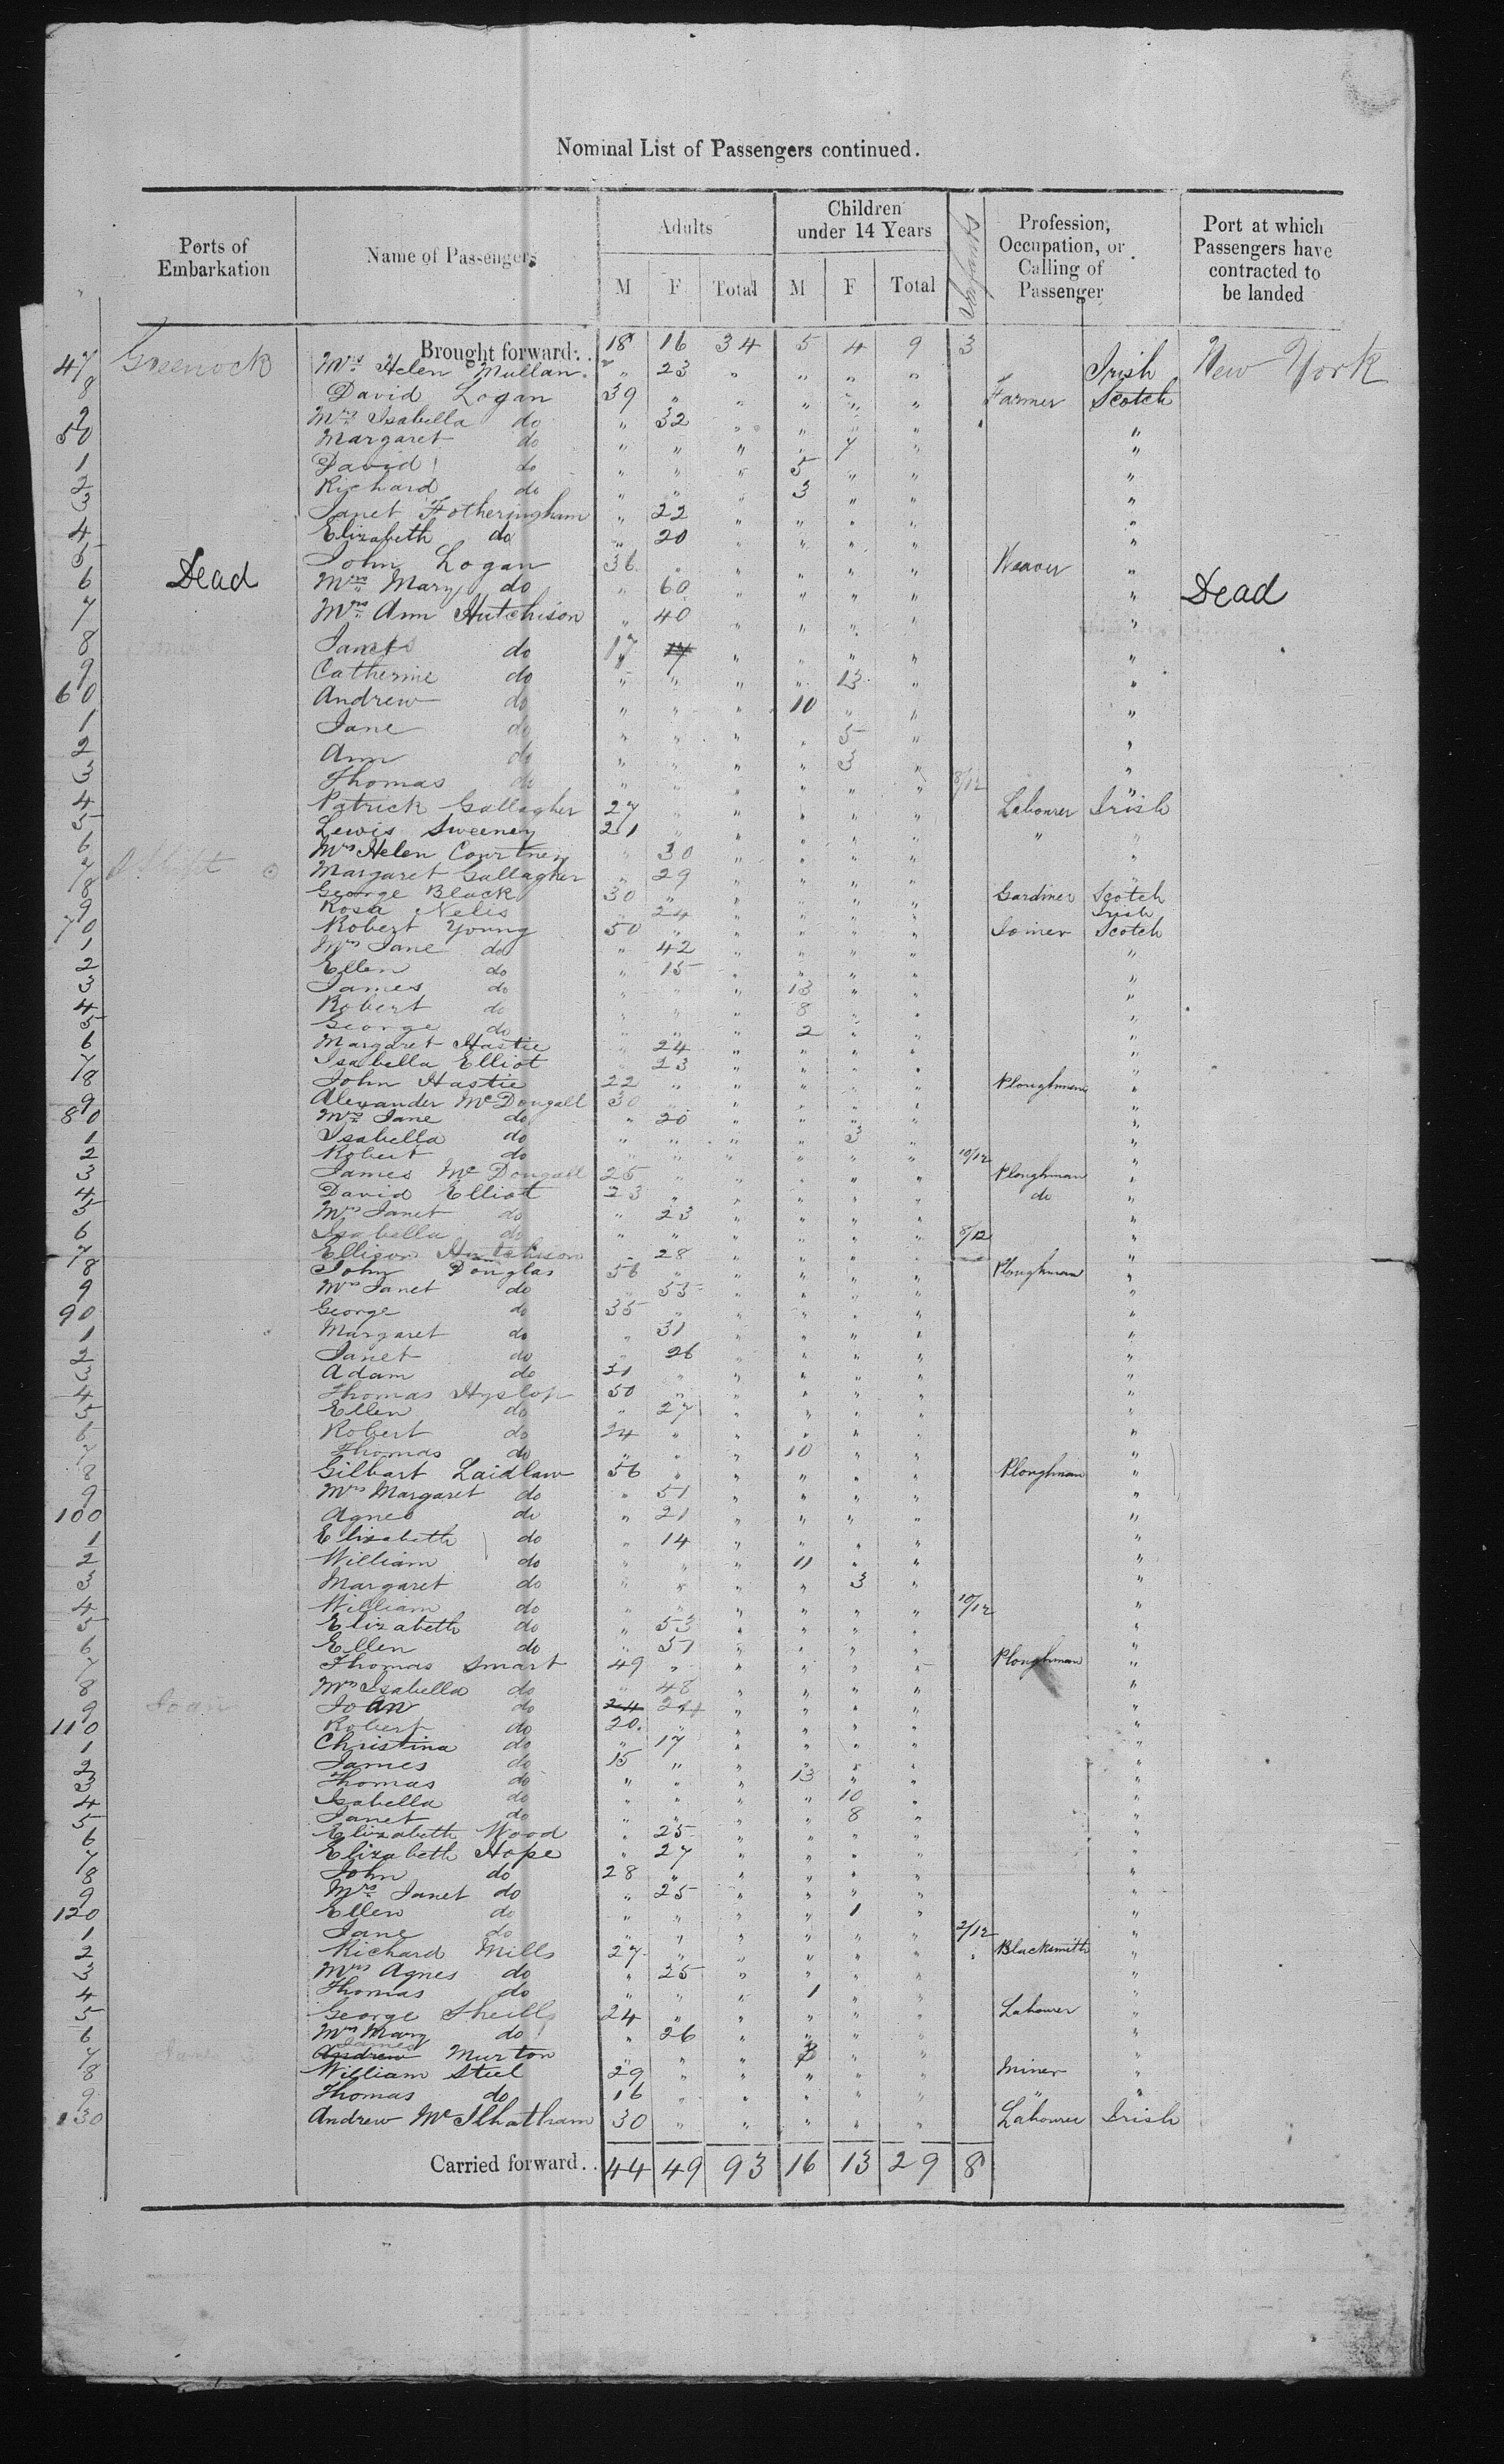 Nominal List of Passengers continued.
Ports of Embarkation | Name of Passengers | Adults M F Total | Children under 14 Years M F Total | Infants | Profession, Occupation, or Calling of Passenger | Port at which Passengers have contracted to be landed
Greenock Brought forward.. 18 16 34 5 4 9 3 New York
47 Mrs Helen Mullan " 23 " " " " Irish
8 David Logan 39 " " " " " Farmer Scotch
9 Mrs Isabella do " 32 " " " " "
50 Margaret do " " " " 7 " "
1 David do " " " 5 " " "
2 Richard do " " " 3 " " "
3 Janet Fotheringham " 22 " " " " "
4 Elizabeth do " 20 " " " " "
5 John Logan 36 " " " " " Weaver "
6 Dead Mrs Mary do " 60 " " " " " Dead
7 Mrs Ann Hutchison " 40 " " " " "
8 James do 17 " " " " "
9 Catherine do " " " " 13 " "
60 Andrew do " " " 10 " " "
1 Jane do " " " " 5 " "
2 Ann do " " " " 3 " "
3 Thomas do " " " " " " 8/12 "
4 Patrick Gallagher 27 " " " " " Labourer Irish
5 Lewis Sweeney 21 " " " " " " "
6 Mrs Helen Courtney " 30 " " " " "
7 Margaret Gallagher " 29 " " " " "
8 George Black 30 " " " " " Gardiner Scotch
9 Rosa Nelis " 24 " " " " Irish
70 Robert Young 50 " " " " " Joiner Scotch
1 Mrs Jane do " 42 " " " " "
2 Ellen do " 15 " " " " "
3 James do " " " 13 " " "
4 Robert do " " " 8 " " "
5 George do " " " 2 " " "
6 Margaret Hastie " 24 " " " " "
7 Isabella Elliot " 23 " " " " "
8 John Hastie 22 " " " " " Ploughman "
9 Alexander McDougall 30 " " " " " "
80 Mrs Jane do " 20 " " " " "
1 Isabella do " " " " 3 " "
2 Robert do " " " " " " 10/12 "
3 James McDougall 25 " " " " " Ploughman "
4 David Elliot 23 " " " " " do "
5 Mrs Janet do " 23 " " " " "
6 Isabella do " " " " " " 8/12 "
7 Ellison Hutchison " 28 " " " " "
8 John Douglas 56 " " " " " Ploughman "
9 Mrs Janet do " 53 " " " " "
90 George do 35 " " " " " "
1 Margaret do " 31 " " " " "
2 Janet do " 26 " " " " "
3 Adam do 21 " " " " " "
4 Thomas Hyslop 50 " " " " " "
5 Ellen do " 27 " " " " "
6 Robert do 24 " " " " " "
7 Thomas do " " " 10 " " "
8 Gilbart Laidlaw 56 " " " " " Ploughman "
9 Mrs Margaret do " 51 " " " " "
100 Agnes do " 21 " " " " "
1 Elizabeth do " 14 " " " " "
2 William do " " " 11 " " "
3 Margaret do " " " " 3 " "
4 William do " " " " " " 10/12 "
5 Elizabeth do " 53 " " " " "
6 Ellen do " 51 " " " " "
7 Thomas Smart 49 " " " " " Ploughman "
8 Mrs Isabella do " 48 " " " " "
9 Joan do 24 24 " " " " "
110 Robert do 20 " " " " " "
1 Christina do " 17 " " " " "
2 James do 15 " " " " " "
3 Thomas do " " " 13 " " "
4 Isabella do " " " " 10 " "
5 Janet do " " " " 8 " "
6 Elizabeth Wood " 25 " " " " "
7 Elizabeth Hope " 27 " " " " "
8 John do 28 " " " " " "
9 Mrs Janet do " 25 " " " " "
120 Ellen do " " " " 1 " "
1 Jane do " " " " " " 2/12 "
2 Richard Mills 27 " " " " " Blacksmith "
3 Mrs Agnes do " 25 " " " " "
4 Thomas do " " " 1 " " "
5 George Sheill 24 " " " " " Labourer "
6 Mrs Mary do " 26 " " " " "
7 Andrew James Murton " " " 3 " " "
8 William Steel 29 " " " " " Miner "
9 Thomas do 16 " " " " " " "
130 Andrew McIlhatham 30 " " " " " Labourer Irish
Carried forward.. 44 49 93 16 13 29 8